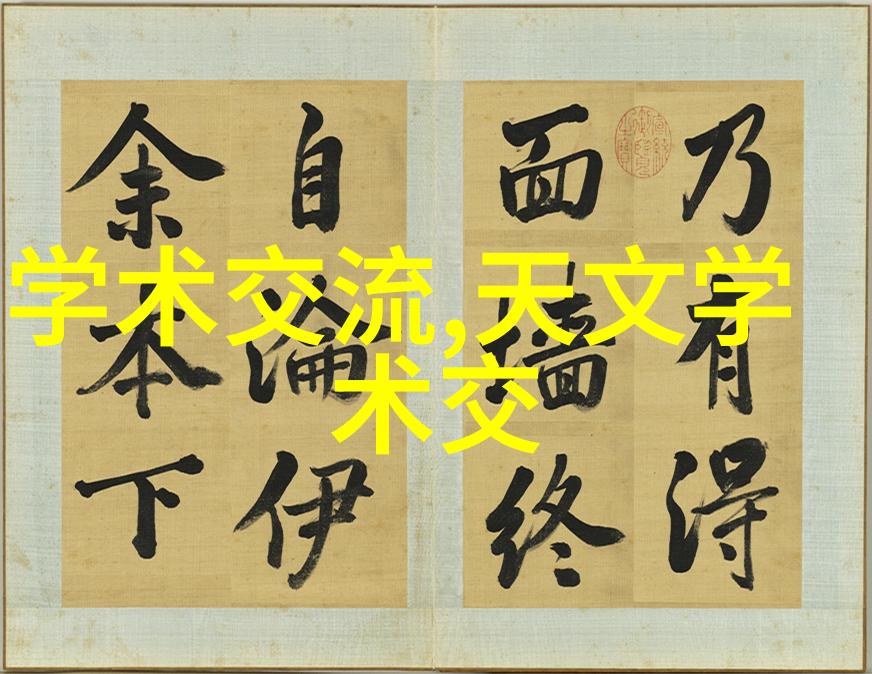 学术交流,天文学
术交
乃有得
面墙终
自淪伊
余本下